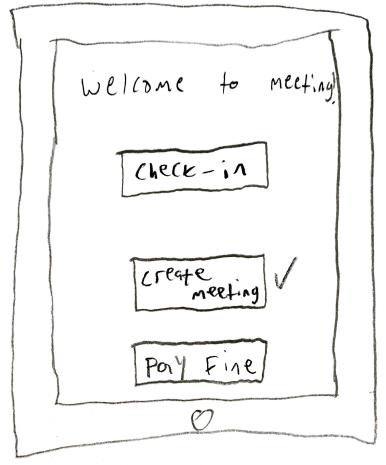 Welcome to meeting!
Check-in
Create
meeting
Pay Fine